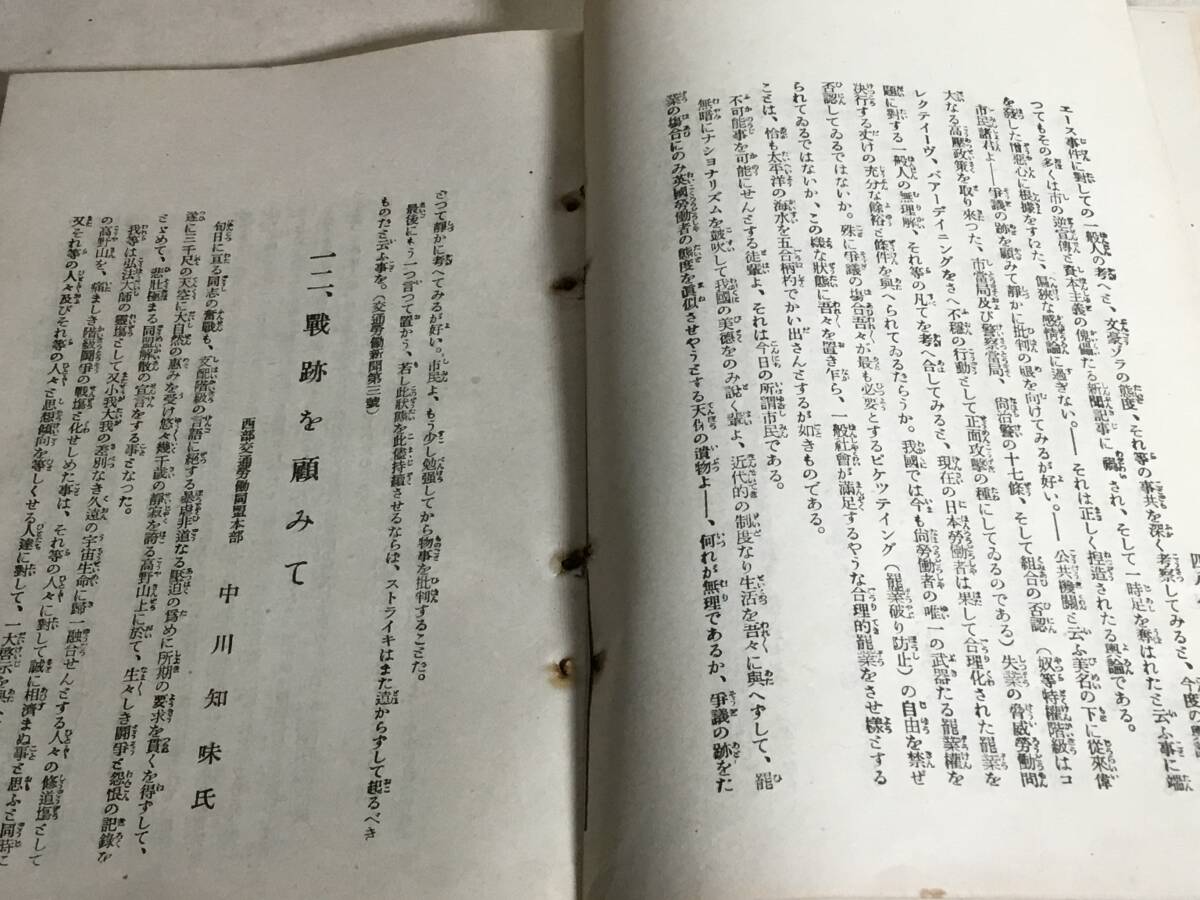 エース事件に對しての一般人の考へと、文豪ゾラの態度、それ等の事共を深く考察してみると、今度の
つてもその多くは市の逆宣傳と資本主義の傀儡たる新聞記事に禍され、そして一時足を奪はれたと云ふ事に端
を發した憎惡心に根據をすゑた、偏狹な感情論に過ぎない。――それは正しく捏造されたる輿論である。
市民諸君よ――爭議の跡を顧みて靜かに批判の眼を向けてみるが好い。――公共機關と云ふ美名の下に從來偉
大なる高壓政策を取り來つた、市當局及び警察當局、尙治警の十七條、そして組合の否認（奴等特權階級はコ
レクテイーヴ、バアーデイニングをさへ不穩の行動として正面攻擊の種にしてゐるのである）失業の脅威勞働問
題に對する一般人の無理解、それ等の凡てを考へ合してみると、現在の日本勞働者は果して合理化された罷業を
決行する丈けの充分な餘裕と條件を與へられてゐるたらうか。我國では今も尙勞働者の唯一の武器たる罷業權を
否認してゐるではないか。殊に爭議の場合吾々が最も必要とするピケツテイング（罷業破り防止）の自由を禁ぜ
られてゐるではないか、この樣な狀態に吾々を置き乍ら、一般社會が滿足するやうな合理的罷業をさせ樣とする
ことは、恰も太平洋の海水を五合柄杓でかい出さんとするが如きものである。
不可能事を可能にせんとする徒輩よ、それは今日の所謂市民である。
無暗にナシヨナリズムを鼓吹して我國の美德をのみ說く輩よ、近代的の制度なり生活を吾々に與へずして、罷
業の場合にのみ英國勞働者の態度を眞似させやうとする天保の遺物よ――、何れが無理であるか、爭議の跡をた
どつて靜かに考へてみるが好い。市民よ、もう少し勉强してから物事を批判することだ。
最後にもう一つ言つて置かう、若し此狀態を此儘持續させるならば、ストライキはまた遠からずして起るべき
ものだと云ふ事を。（交通勞働新聞第三號）
一二、戰跡を顧みて
西部交通勞働同盟本部
中川知味氏
旬日に亘る同志の奮戰も、支配階級の言語に絕する暴虐非道なる壓迫の爲めに所期の要求を貫くを得ずして、
遂に三千尺の天空に大自然の惠みを受け悠々幾千歲の靜寂を誇る高野山上に於て、生々しき鬪爭と怨恨の記錄を
とゞめて、悲壯極まる同盟解散の宣言をする事となつた。
我等は弘法大師の靈塲として又小我大我の差別なき久遠の宇宙生命に歸一融合せんとする人々の修道塲として
の高野山を、痛ましき階級鬪爭の戰塲と化せしめた事は、それ等の人々に對して誠に相濟まぬ事と思ふと同時に
又それ等の人々及びそれ等の人々と思想傾向を等しくせる人達に對して、一大啓示を